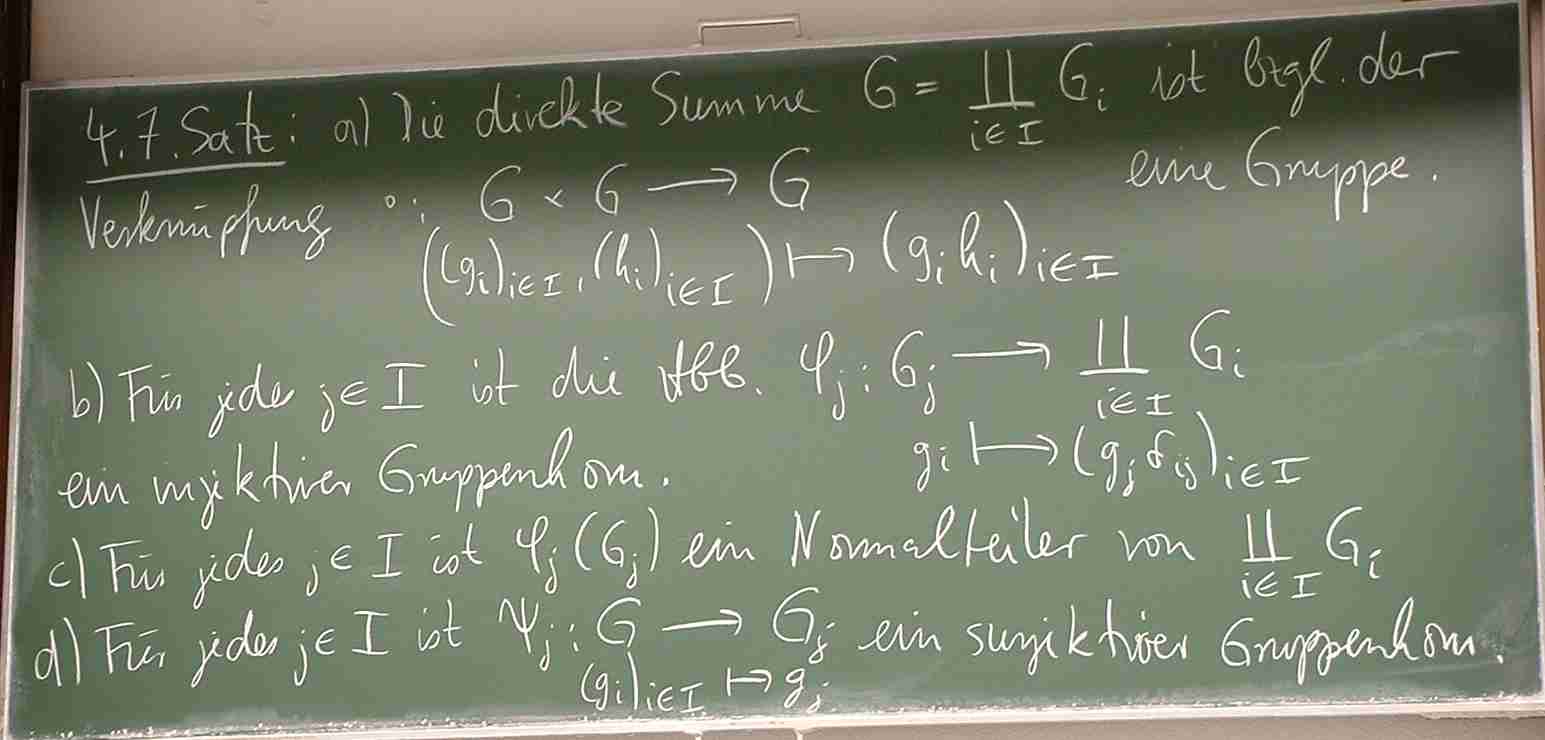 4.7. Satz: a) Die direkte Summe G = ∐_{i∈I} G_i ist bzgl. der
Verknüpfung ∘: G × G ⟶ G eine Gruppe.
((g_i)_{i∈I}, (h_i)_{i∈I}) ↦ (g_i h_i)_{i∈I}
b) Für jedes j∈I ist die Abb. φ_j: G_j ⟶ ∐_{i∈I} G_i
ein injektiver Gruppenhom. g_i ⟼ (g_j δ_ij)_{i∈I}
c) Für jedes j∈I ist φ_j(G_j) ein Normalteiler von ∐_{i∈I} G_i
d) Für jedes j∈I ist ψ_j: G ⟶ G_j ein surjektiver Gruppenhom.
(g_i)_{i∈I} ↦ g_j